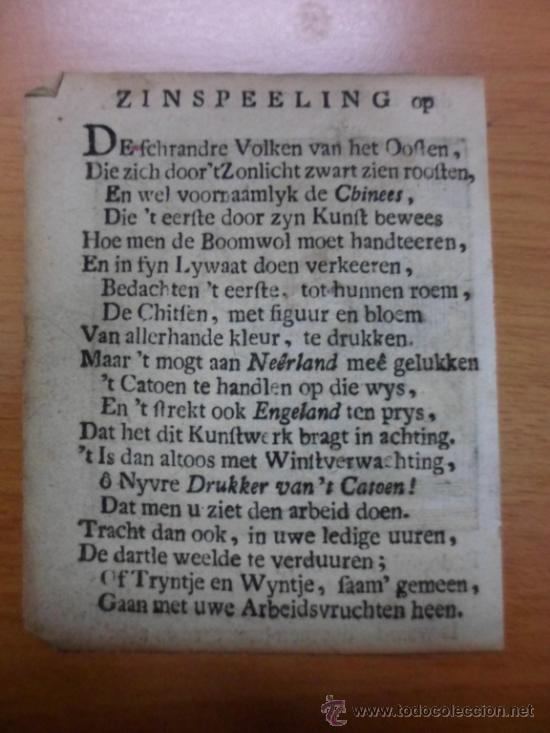 ZINSPEELING op
DE ſchrandre Volken van het Ooſten,
Die zich door 't Zonlicht zwart zien rooſten,
En wel voornaamlyk de Chinees,
Die 't eerſte door zyn Kunſt bewees
Hoe men de Boomwol moet handteeren,
En in fyn Lywaat doen verkeeren,
Bedachten 't eerſte, tot hunnen roem,
De Chitſen, met figuur en bloem
Van allerhande kleur, te drukken.
Maar 't mogt aan Neêrland meê gelukken
't Catoen te handlen op die wys,
En 't ſtrekt ook Engeland ten prys,
Dat het dit Kunſtwerk bragt in achting.
't Is dan altoos met Winſtverwachting,
ô Nyvre Drukker van 't Catoen!
Dat men u ziet den arbeid doen.
Tracht dan ook, in uwe ledige uuren,
De dartle weelde te verduuren;
Of Tryntje en Wyntje, ſaam' gemeen,
Gaan met uwe Arbeidsvruchten heen.
todocoleccion.net